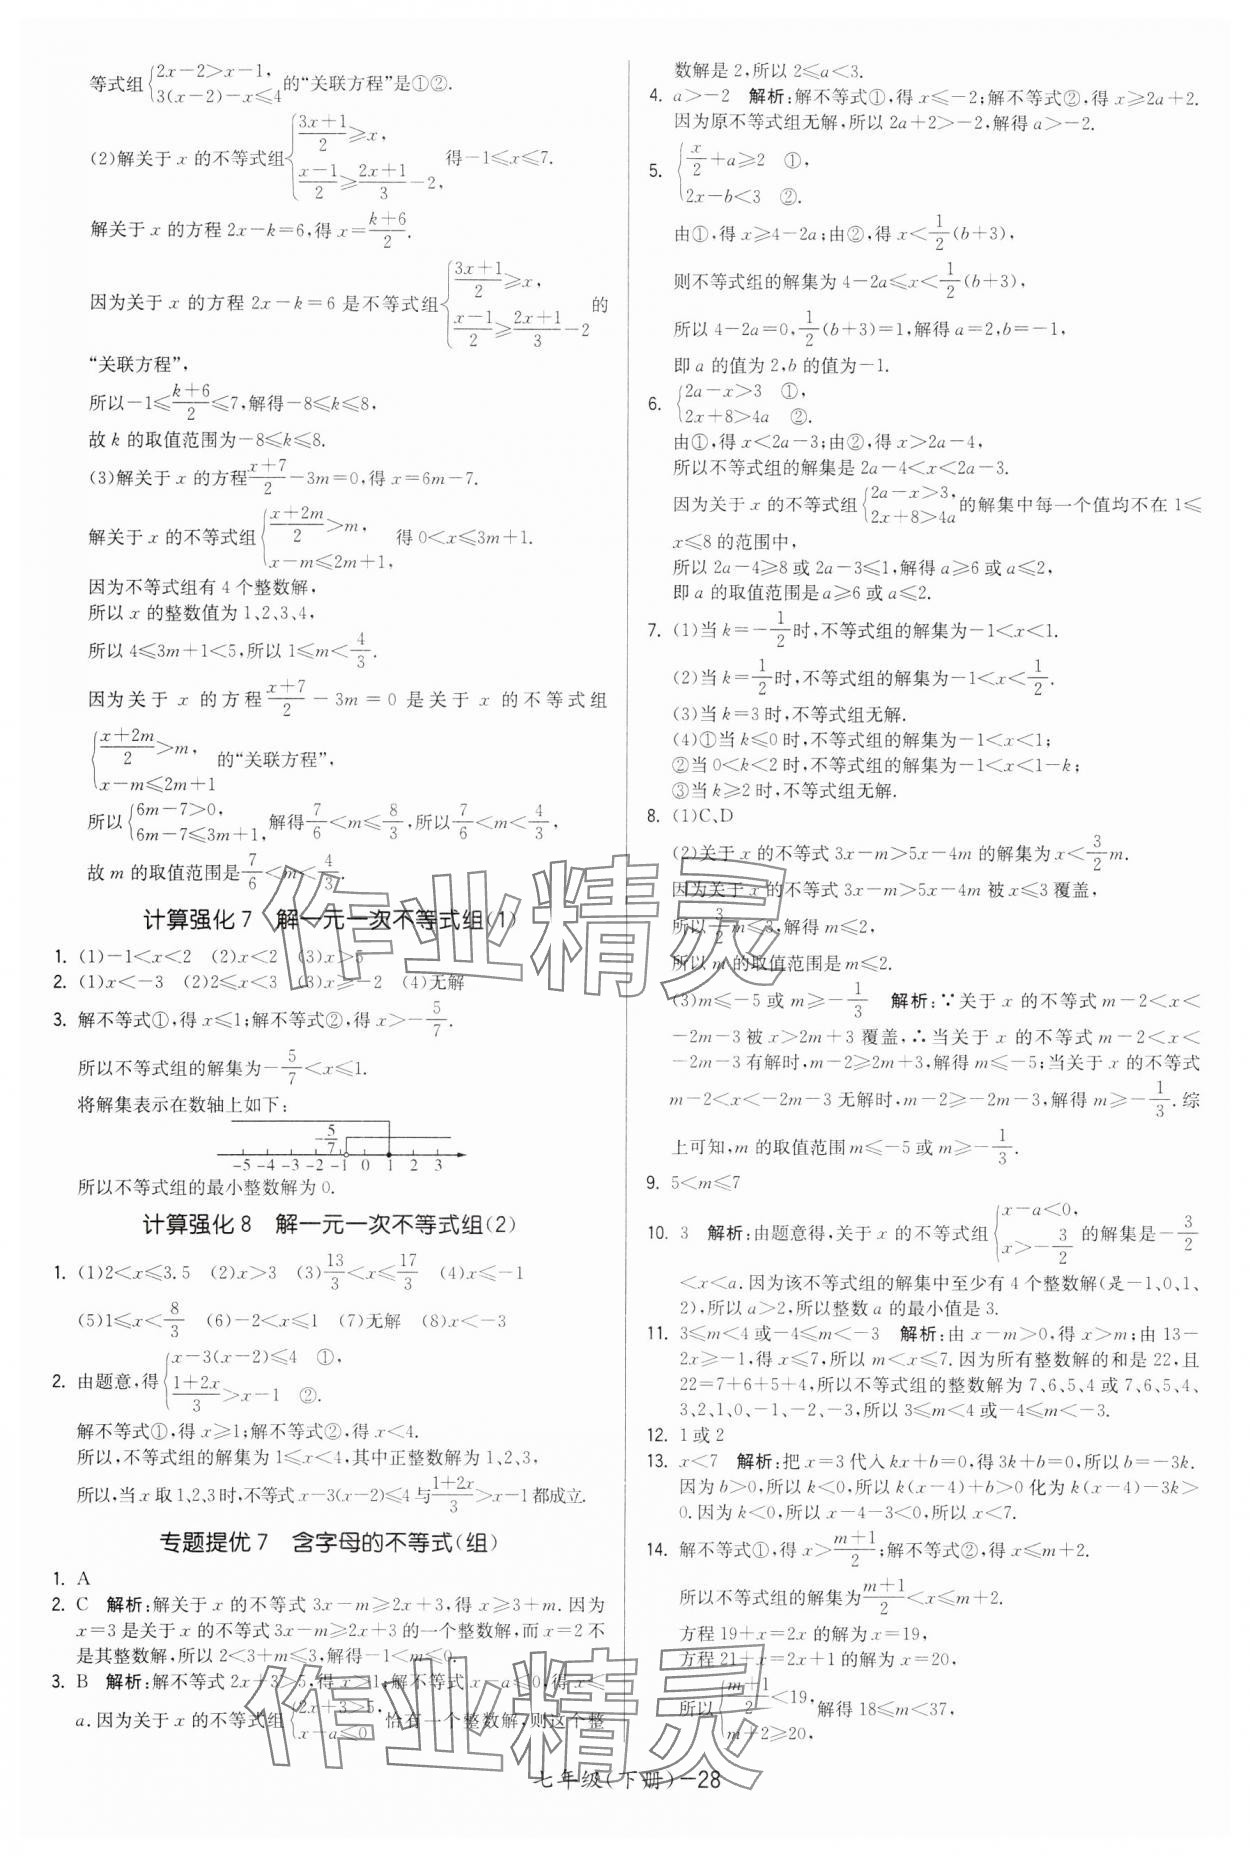 等式组{2x-2>x-1, 3(x-2)-x≤4 的“关联方程”是①②.
(2)解关于 x 的不等式组{(3x+1)/2≥x, (x-1)/2≥(2x+1)/3-2, 得-1≤x≤7.
解关于 x 的方程 2x-k=6,得 x=(k+6)/2.
因为关于 x 的方程 2x-k=6 是不等式组{(3x+1)/2≥x, (x-1)/2≥(2x+1)/3-2 的
“关联方程”,
所以-1≤(k+6)/2≤7,解得-8≤k≤8,
故 k 的取值范围为-8≤k≤8.
(3)解关于 x 的方程(x+7)/2-3m=0,得 x=6m-7.
解关于 x 的不等式组{(x+2m)/2>m, x-m≤2m+1, 得 0<x≤3m+1.
因为不等式组有 4 个整数解,
所以 x 的整数值为 1、2、3、4,
所以 4≤3m+1<5,所以 1≤m<4/3.
因为关于 x 的方程(x+7)/2-3m=0 是关于 x 的不等式组
{(x+2m)/2>m, x-m≤2m+1 的“关联方程”,
所以{6m-7>0, 6m-7≤3m+1, 解得7/6<m≤8/3,所以7/6<m<4/3,
故 m 的取值范围是7/6<m<4/3.
计算强化 7 解一元一次不等式组(1)
1. (1)-1<x<2 (2)x<2 (3)x>5
2. (1)x<-3 (2)2≤x<3 (3)x≥-2 (4)无解
3. 解不等式①,得 x≤1;解不等式②,得 x>-5/7.
所以不等式组的解集为-5/7<x≤1.
将解集表示在数轴上如下:
-5/7
-5 -4 -3 -2 -1 0 1 2 3
所以不等式组的最小整数解为 0.
计算强化 8 解一元一次不等式组(2)
1. (1)2<x≤3.5 (2)x>3 (3)13/3<x≤17/3 (4)x≤-1
(5)1≤x<8/3 (6)-2<x≤1 (7)无解 (8)x<-3
2. 由题意,得{x-3(x-2)≤4 ①, (1+2x)/3>x-1 ②.
解不等式①,得 x≥1;解不等式②,得 x<4.
所以,不等式组的解集为 1≤x<4,其中正整数解为 1、2、3,
所以,当 x 取 1、2、3 时,不等式 x-3(x-2)≤4 与(1+2x)/3>x-1 都成立.
专题提优 7 含字母的不等式(组)
1. A
2. C 解析:解关于 x 的不等式 3x-m≥2x+3,得 x≥3+m.因为
x=3 是关于 x 的不等式 3x-m≥2x+3 的一个整数解,而 x=2 不
是其整数解,所以 2<3+m≤3,解得-1<m≤0.
3. B 解析:解不等式 2x+3>5,得 x>1;解不等式 x-a≤0,得 x≤
a.因为关于 x 的不等式组{2x+3>5, x-a≤0 恰有一个整数解,则这个整
数解是 2,所以 2≤a<3.
4. a>-2 解析:解不等式①,得 x≤-2;解不等式②,得 x≥2a+2.
因为原不等式组无解,所以 2a+2>-2,解得 a>-2.
5. {x/2+a≥2 ①, 2x-b<3 ②.
由①,得 x≥4-2a;由②,得 x<1/2(b+3),
则不等式组的解集为 4-2a≤x<1/2(b+3),
所以 4-2a=0,1/2(b+3)=1,解得 a=2,b=-1,
即 a 的值为 2,b 的值为-1.
6. {2a-x>3 ①, 2x+8>4a ②.
由①,得 x<2a-3;由②,得 x>2a-4,
所以不等式组的解集是 2a-4<x<2a-3.
因为关于 x 的不等式组{2a-x>3, 2x+8>4a 的解集中每一个值均不在 1≤
x≤8 的范围中,
所以 2a-4≥8 或 2a-3≤1,解得 a≥6 或 a≤2,
即 a 的取值范围是 a≥6 或 a≤2.
7. (1)当 k=-1/2时,不等式组的解集为-1<x<1.
(2)当 k=1/2时,不等式组的解集为-1<x<1/2.
(3)当 k=3 时,不等式组无解.
(4)①当 k≤0 时,不等式组的解集为-1<x<1;
②当 0<k<2 时,不等式组的解集为-1<x<1-k;
③当 k≥2 时,不等式组无解.
8. (1)C、D
(2)关于 x 的不等式 3x-m>5x-4m 的解集为 x<3/2m.
因为关于 x 的不等式 3x-m>5x-4m 被 x≤3 覆盖,
所以3/2m≤3,解得 m≤2,
所以 m 的取值范围是 m≤2.
(3)m≤-5 或 m≥-1/3 解析:∵关于 x 的不等式 m-2<x<
-2m-3 被 x>2m+3 覆盖,∴当关于 x 的不等式 m-2<x<
-2m-3 有解时,m-2≥2m+3,解得 m≤-5;当关于 x 的不等式
m-2<x<-2m-3 无解时,m-2≥-2m-3,解得 m≥-1/3.综
上可知,m 的取值范围 m≤-5 或 m≥-1/3.
9. 5<m≤7
10. 3 解析:由题意得,关于 x 的不等式组{x-a<0, x>-3/2 的解集是-3/2
<x<a.因为该不等式组的解集中至少有 4 个整数解(是-1、0、1、
2),所以 a>2,所以整数 a 的最小值是 3.
11. 3≤m<4 或-4≤m<-3 解析:由 x-m>0,得 x>m;由 13-
2x≥-1,得 x≤7,所以 m<x≤7.因为所有整数解的和是 22,且
22=7+6+5+4,所以不等式组的整数解为 7、6、5、4 或 7、6、5、4、
3、2、1、0、-1、-2、-3,所以 3≤m<4 或-4≤m<-3.
12. 1 或 2
13. x<7 解析:把 x=3 代入 kx+b=0,得 3k+b=0,所以 b=-3k.
因为 b>0,所以 k<0,所以 k(x-4)+b>0 化为 k(x-4)-3k>
0.因为 k<0,所以 x-4-3<0,所以 x<7.
14. 解不等式①,得 x>(m+1)/2;解不等式②,得 x≤m+2.
所以不等式组的解集为(m+1)/2<x≤m+2.
方程 19+x=2x 的解为 x=19,
方程 21+x=2x+1 的解为 x=20,
所以{(m+1)/2<19, m+2≥20, 解得 18≤m<37,
七年级(下册)-28
作业精灵
作业精灵